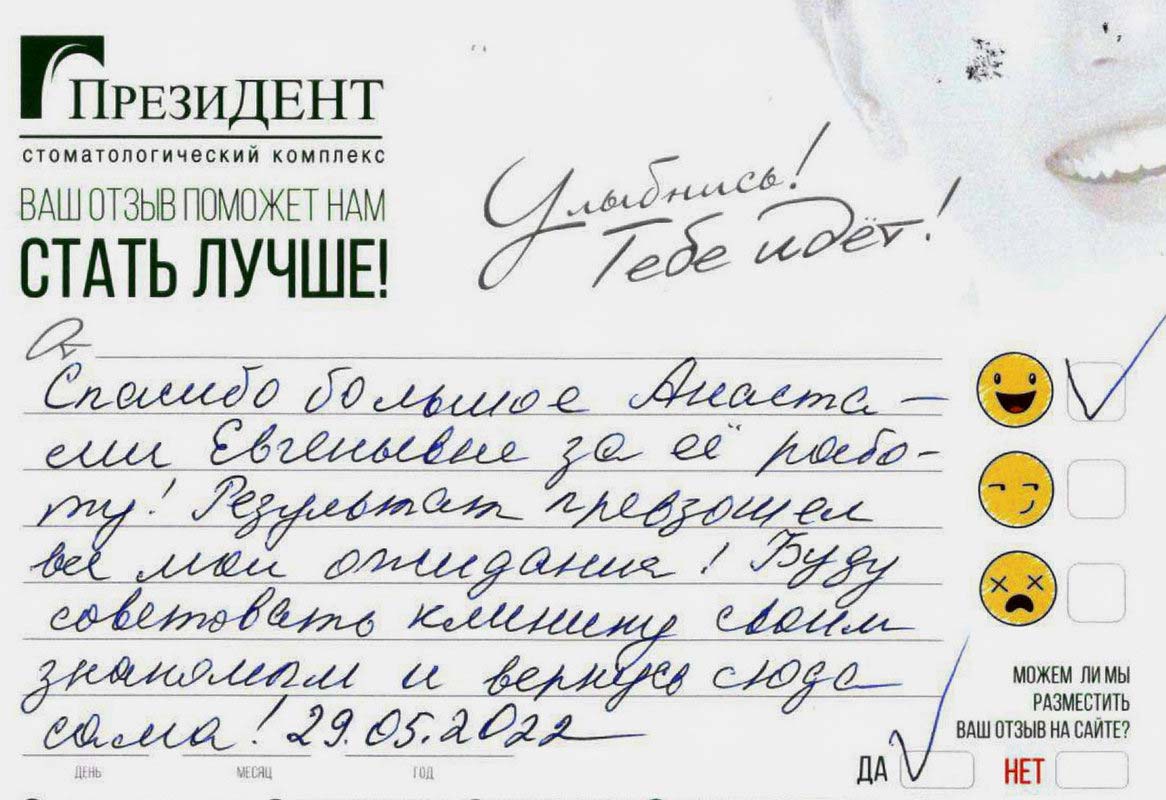 ПрезиДЕНТ
стоматологический комплекс
ВАШ ОТЗЫВ ПОМОЖЕТ НАМ
СТАТЬ ЛУЧШЕ!
Улыбнись!
Тебе идёт!
Спасибо большое Анаста-
сии Евгеньевне за её рабо-
ту! Результат превзошел
все мои ожидания! Буду
советовать клинику своим
знакомым и вернусь сюда
сама! 29.05.2022
ДЕНЬ МЕСЯЦ ГОД
МОЖЕМ ЛИ МЫ
РАЗМЕСТИТЬ
ВАШ ОТЗЫВ НА САЙТЕ?
ДА НЕТ